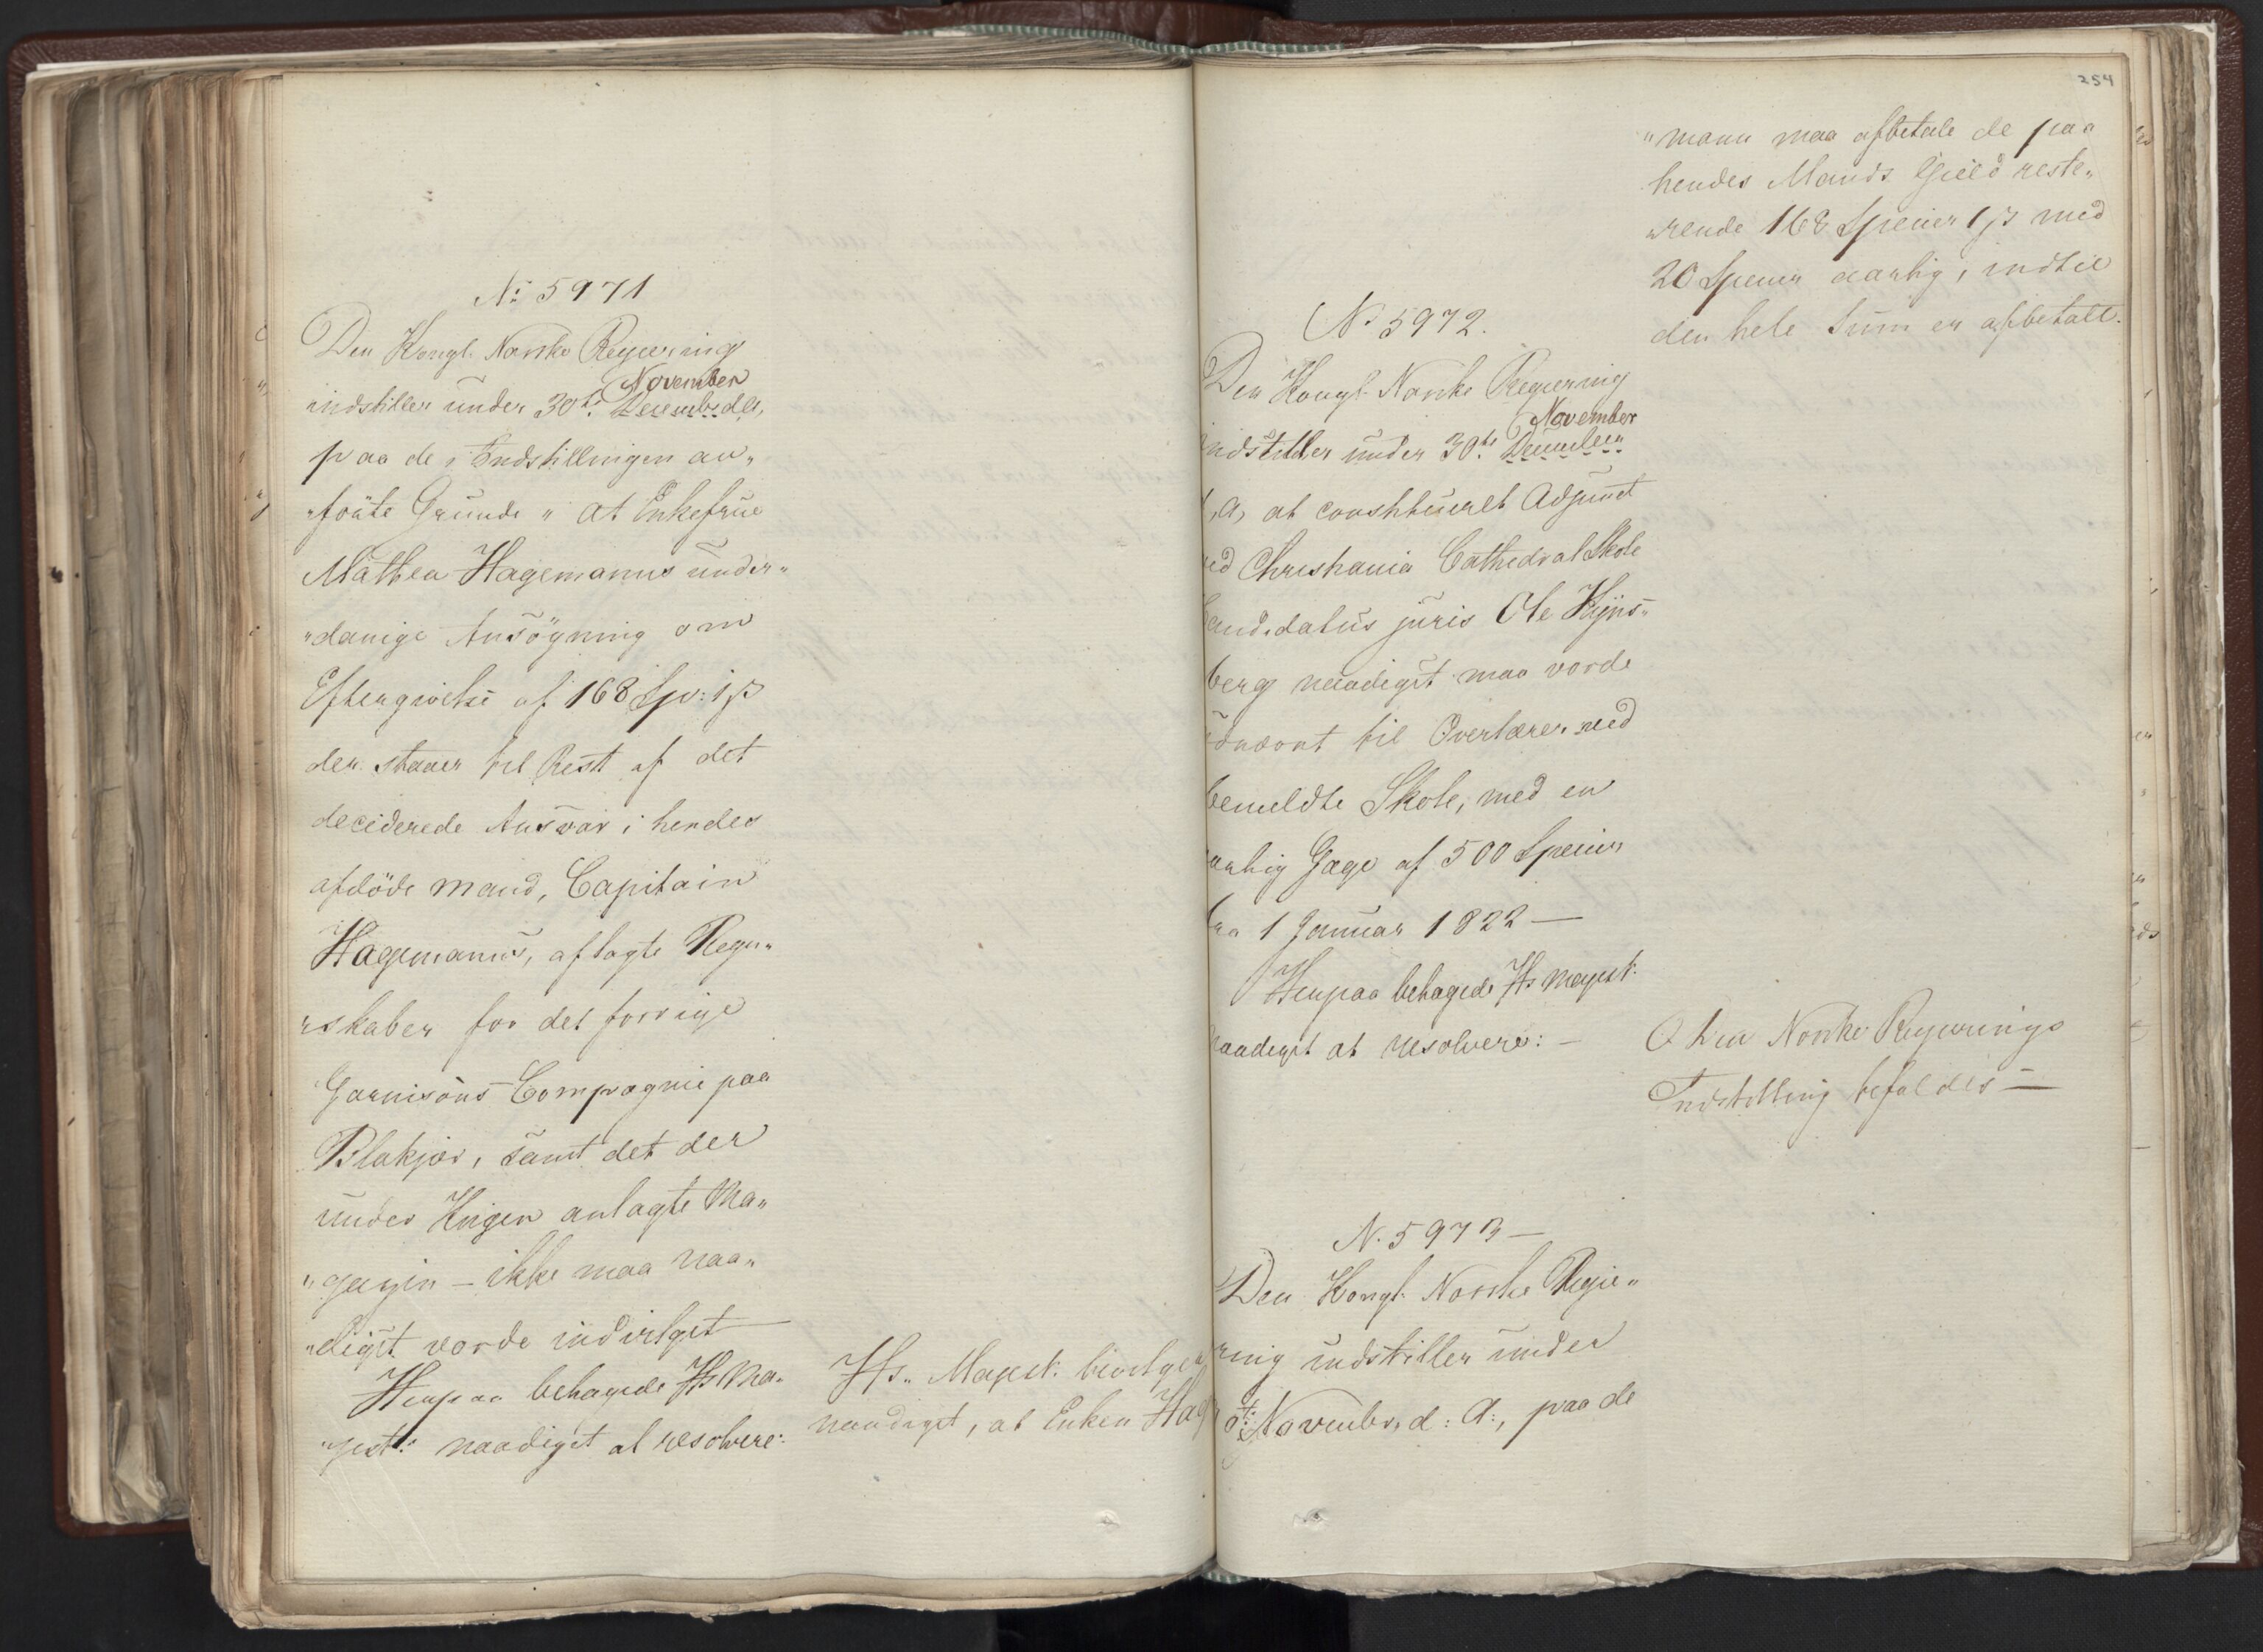 No 5971
Den Kongl. Norske Regjering
November
indstiller under 30te December d. A.,
paa de i Indstillingen an„
„förte Grunde „ at Enkefrue
Mathea Hagemanns under„
„danige Ansögning om
Eftergivelse af 168 Spd: 1 ß
der staaer til Rest af det
deciderede Ansvar i hendes
afdöde Mand, Capitain
Hagemanns, aflagte Regn„
„skaber for det forrige
Garnisons Compagnie paa
Blakjær, samt det der
under Krigen anlagte Ma„
„gazin – ikke maa naa„
„digst vorde indvilget —
Herpaa behagede Hs Ma„
„jest: naadigst at resolvere:
Hs. Majest: bevilger
naadigst, at Enken Hag
254
„mann maa afbetale de paa
hendes Mands Gield reste„
„rende 168 Specier 1 ß med
20 Specier aarlig, indtil
den hele Sum er afbetalt.
No 5972.
Den Kongl. Norske Regiering
November
indstiller under 30te December
d. A, at constitueret Adjunct
ved Christiania Cathedral Skole
Candidatus juris Ole Kyns„
berg naadigst maa vorde
udnævnt til Overlærer ved
bemeldte Skole, med en
aarlig Gage af 500 Specier
fra 1 Januar 1822 —
Herpaa behagede Hs Majest:
naadigst at resolvere: –
Den Norske Regjerings
Indstilling bifaldes —
N. 5973 —
Den Kongl. Norske Regie„
ring indstiller under
November, d: A:, paa de